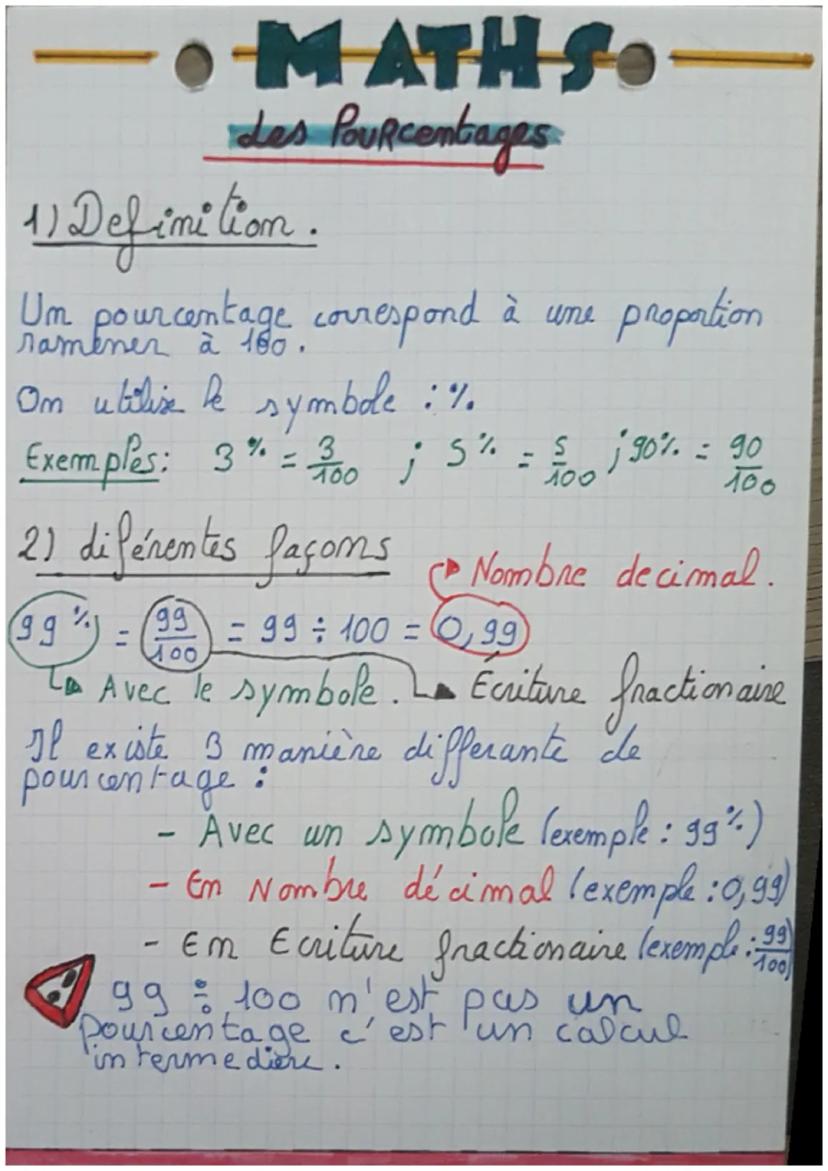 MATHS
Les Pourcentages
1) Definition.
Un pourcentage correspond à une proportion
ramener à 100.
On utilise le symbole : %.
Exemples: 3% = 3/100 ; 5% = 5/100 ; 90% = 90/100
2) diférentes façons
Nombre decimal.
99% = 99/100 = 99 ÷ 100 = 0,99
Avec le symbole. Ecriture fractionaire
Il existe 3 manière differante de
pourcentage :
- Avec un symbole (exemple : 99%)
- En Nombre décimal (exemple : 0,99)
- En Ecriture fractionaire (exemple : 99/100)
99 ÷ 100 n'est pas un
pourcentage c'est un calcul
intermediere.